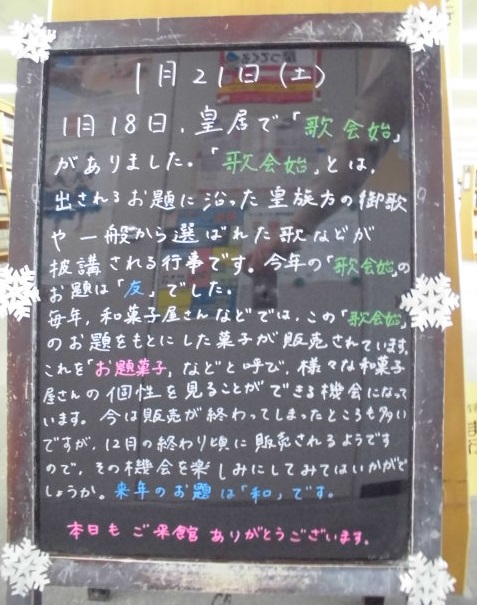 1月21日(土)
1月18日、皇居で「歌会始」
がありました。「歌会始」とは、
出されるお題に沿った皇族方の御歌
や一般から選ばれた歌などが
披講される行事です。今年の「歌会始」の
お題は「友」でした。
毎年、和菓子屋さんなどでは、この「歌会始」
のお題をもとにした菓子が販売されています。
これを「お題菓子」などと呼び、様々な和菓子
屋さんの個性を見ることができる機会になって
います。今は販売が終わってしまったところも多い
ですが、12月の終わり頃に販売されるようです
ので、その機会を楽しみにしてみてはいかがで
しょうか。来年のお題は「和」です。
本日もご来館ありがとうございます。